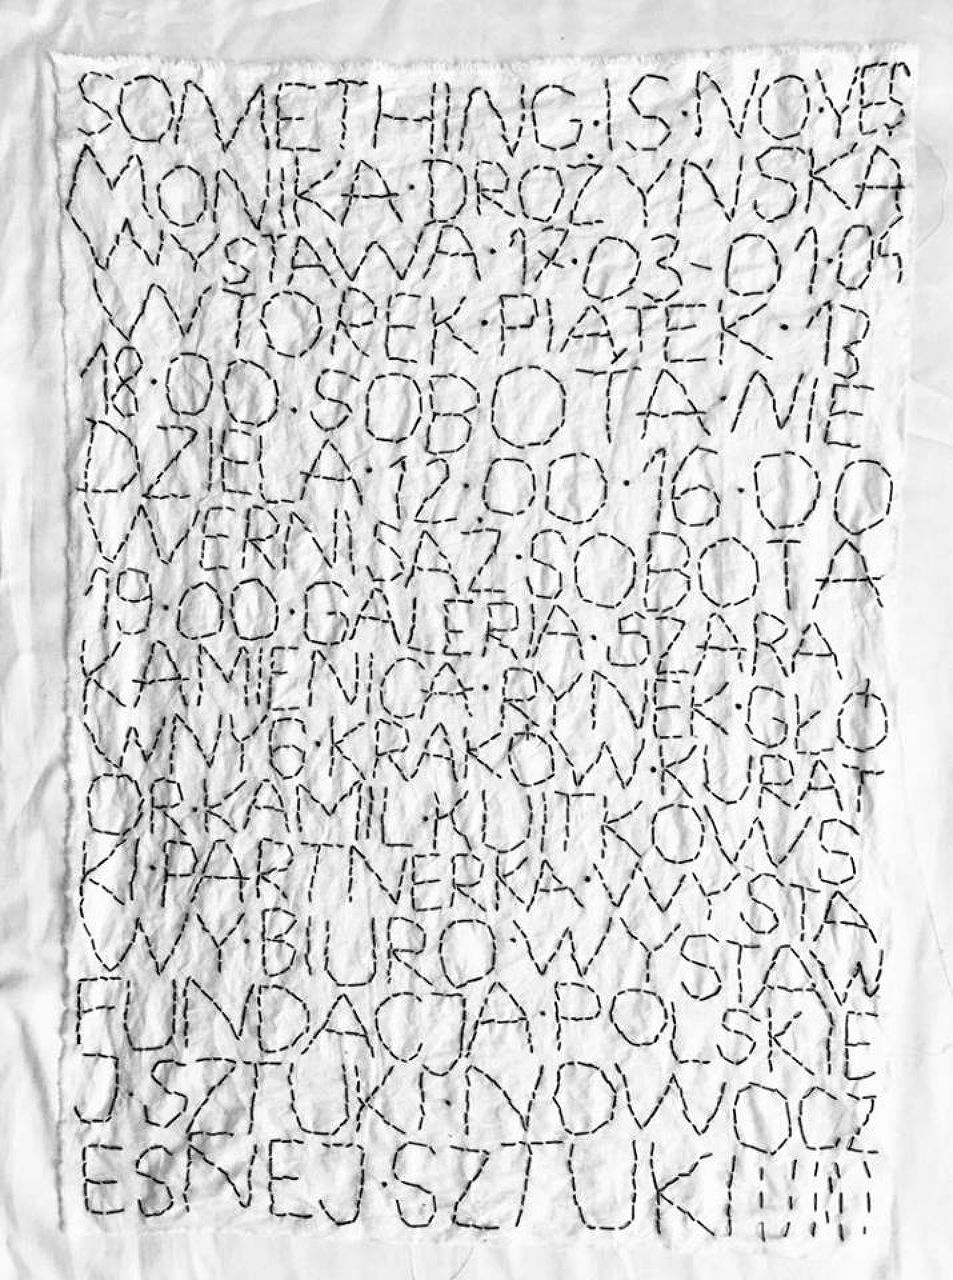 SOMETHING·IS·NO·YES
MONIKA·DROZYNSKA
WYSTAWA·17·03-01·04
WTOREK·PIĄTEK·13
18·00·SOBOTA·NIE
DZIELA·12·00·16·00
WERNISAZ·SOBOTA
19·00·GALERIA·SZARA
KAMIENICA·RYNEK·GŁÓ
WNY6·KRAKÓW·KURAT
OR·KAMIL·KUITKOWS
KI·PARTNERKA·WYSTA
WY·BIURO·WYSTAW
FUNDACJA·POLSKIE
J·SZTUKI·NOWOCZ
ESNEJ·SZTUKI!!!!!